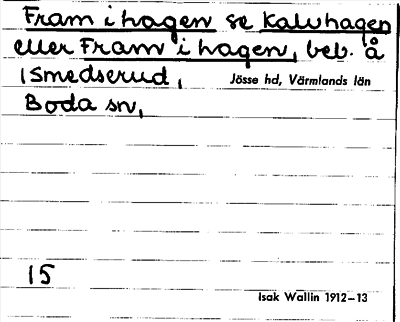 Fram i hagen se Kalvhagen
eller Fram i hagen, beb. å
1 Smedserud,
Jösse hd, Värmlands län
Boda sn,
15
Isak Wallin 1912–13